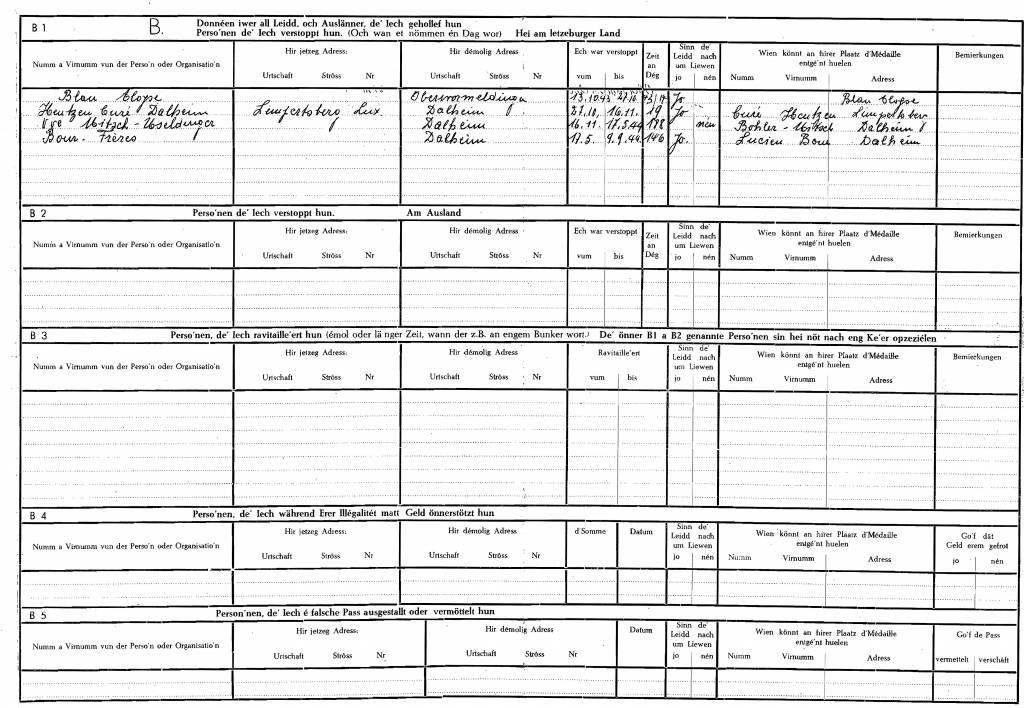 B 1 B. Donnéen iwer all Leidd, och Auslänner, de' Iech gehollef hun
Perso'nen de' Iech verstoppt hun. (Och wan et nömmen én Dag wor) Hei am letzeburger Land
Numm a Virnumm vun der Perso'n oder Organisatio'n Hir jetzeg Adress: Hir démolig Adress Ech war verstoppt Zeit an Dég Sinn de' Leidd nach um Liewen Wien könnt an hirer Plaatz d'Médaille entgé'nt huelen Bemierkungen
Urtschaft Ströss Nr Urtschaft Ströss Nr vum bis jo nén Numm Virnumm Adress
Blau Jo Blau
Hentzen Curé Dalheim Lux. Dalheim 16.11. 19 Jo Curé Hentzen
Vve Mitsch - Useldinger Dalheim 16.11. 17.5.44 178 neu Bohler - Mitsch Dalheim
Bour - Frères Dalheim 17.5. 9.9.44 146 Jo. Lucien Bour Dalheim
B 2 Perso'nen de' Iech verstoppt hun. Am Ausland
Numm a Virnumm vun der Perso'n oder Organisatio'n Hir jetzeg Adress: Hir démolig Adress Ech war verstoppt Zeit an Dég Sinn de' Leidd nach um Liewen Wien könnt an hirer Plaatz d'Médaille entgé'nt huelen Bemierkungen
Urtschaft Ströss Nr Urtschaft Ströss Nr vum bis jo nén Numm Virnumm Adress
B 3 Perso'nen, de' Iech ravitaille'ert hun (émol oder länger Zeit, wann der z.B. an engem Bunker wort.) De' önner B1 a B2 genannte Perso'nen sin hei nöt nach eng Ke'er opzezielen
Numm a Virnumm vun der Perso'n oder Organisatio'n Hir jetzeg Adress: Hir démolig Adress Ravitaille'ert Sinn de' Leidd nach um Liewen Wien könnt an hirer Plaatz d'Médaille entgé'nt huelen Bemierkungen
Urtschaft Ströss Nr Urtschaft Ströss Nr vum bis jo nén Numm Virnumm Adress
B 4 Perso'nen, de' Iech während Erer Illégalitét matt Geld önnerstötzt hun
Numm a Virnumm vun der Perso'n oder Organisatio'n Hir jetzeg Adress: Hir démolig Adress d'Somme Datum Sinn de' Leidd nach um Liewen Wien könnt an hirer Plaatz d'Médaille entgé'nt huelen Go'f dât Geld erem gefrot
Urtschaft Ströss Nr Urtschaft Ströss Nr jo nén Numm Virnumm Adress jo nén
B 5 Person'nen, de' Iech é falsche Pass ausgestallt oder vermöttelt hun
Numm a Virnumm vun der Perso'n oder Organisatio'n Hir jetzeg Adress: Hir démolig Adress Datum Sinn de' Leidd nach um Liewen Wien könnt an hirer Plaatz d'Médaille entgé'nt huelen Go'f de Pass
Urtschaft Ströss Nr Urtschaft Ströss Nr jo nén Numm Virnumm Adress vermettelt verschâft